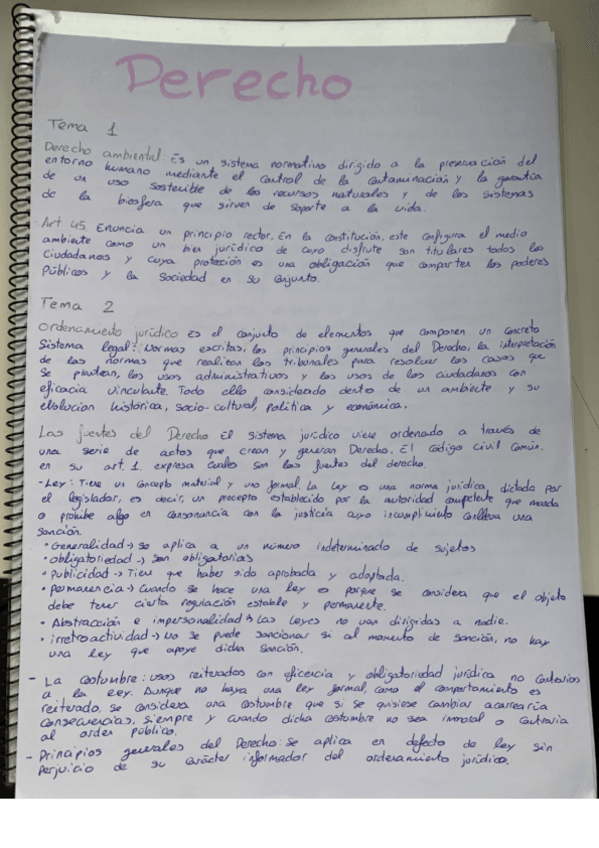 Derecho
Tema 1
Derecho ambiental: Es un sistema normativo dirigido a la preservación del
entorno humano mediante el control de la contaminación y la garantía
de un uso sostenible de los recursos naturales y de los sistemas
de la biosfera que sirven de soporte a la vida.
Art 45. Enuncia un principio rector. En la constitución, este configura el medio
ambiente como un bien jurídico de cuyo disfrute son titulares todos los
ciudadanos y cuya protección es una obligación que comparten los poderes
Públicos y la Sociedad en su conjunto.
Tema 2
Ordenamiento jurídico Es el conjunto de elementos que componen un concreto
Sistema legal: Normas escritas, los principios generales del Derecho, la interpretación
de las normas que realizan los tribunales para resolver los casos que
se plantean, los usos administrativos y los usos de los ciudadanos con
eficacia vinculante. Todo ello considerado dentro de un ambiente y su
evolucion histórica, socio-cultural, política y económica.
Las fuentes del Derecho El sistema jurídico viene ordenado a través de
una serie de actos que crean y generan Derecho. El código civil común,
en su art. 1. expresa cuales son las fuentes del derecho.
- Ley: Tiene un concepto material y uno formal. La ley es una norma jurídica, dictada por
el legislador, es decir, un precepto establecido por la autoridad competente que manda
o prohibe algo en consonancia con la justicia cuyo incumplimiento conlleva una
Sanción.
• Generalidad → se aplica a un número indeterminado de sujetos
• obligatoriedad → son obligatorias
• Publicidad → Tiene que haber sido aprobada y adaptada.
• permanencia → cuando se hace una ley es porque se considera que el objeto
debe tener cierta regulación estable y permanente.
• Abstracción e impersonalidad → Las leyes no van dirigidas a nadie.
• irretroactividad → No se puede sancionar si al momento de sanción, no hay
una ley que apoye dicha sanción.
- La costumbre: usos reiterados con eficencia y obligatoriedad jurídica no contrarios
a la ley. Aunque no haya una ley formal, como el comportamiento es
reiterado, se considera una costumbre que si se quisiese cambiar acarrearía
consecuencias, siempre y cuando dicha costumbre no sea inmoral o contraria
al orden público.
- Principios generales del Derecho: Se aplica en defecto de ley sin
perjuicio de su carácter informador del ordenamiento jurídico.